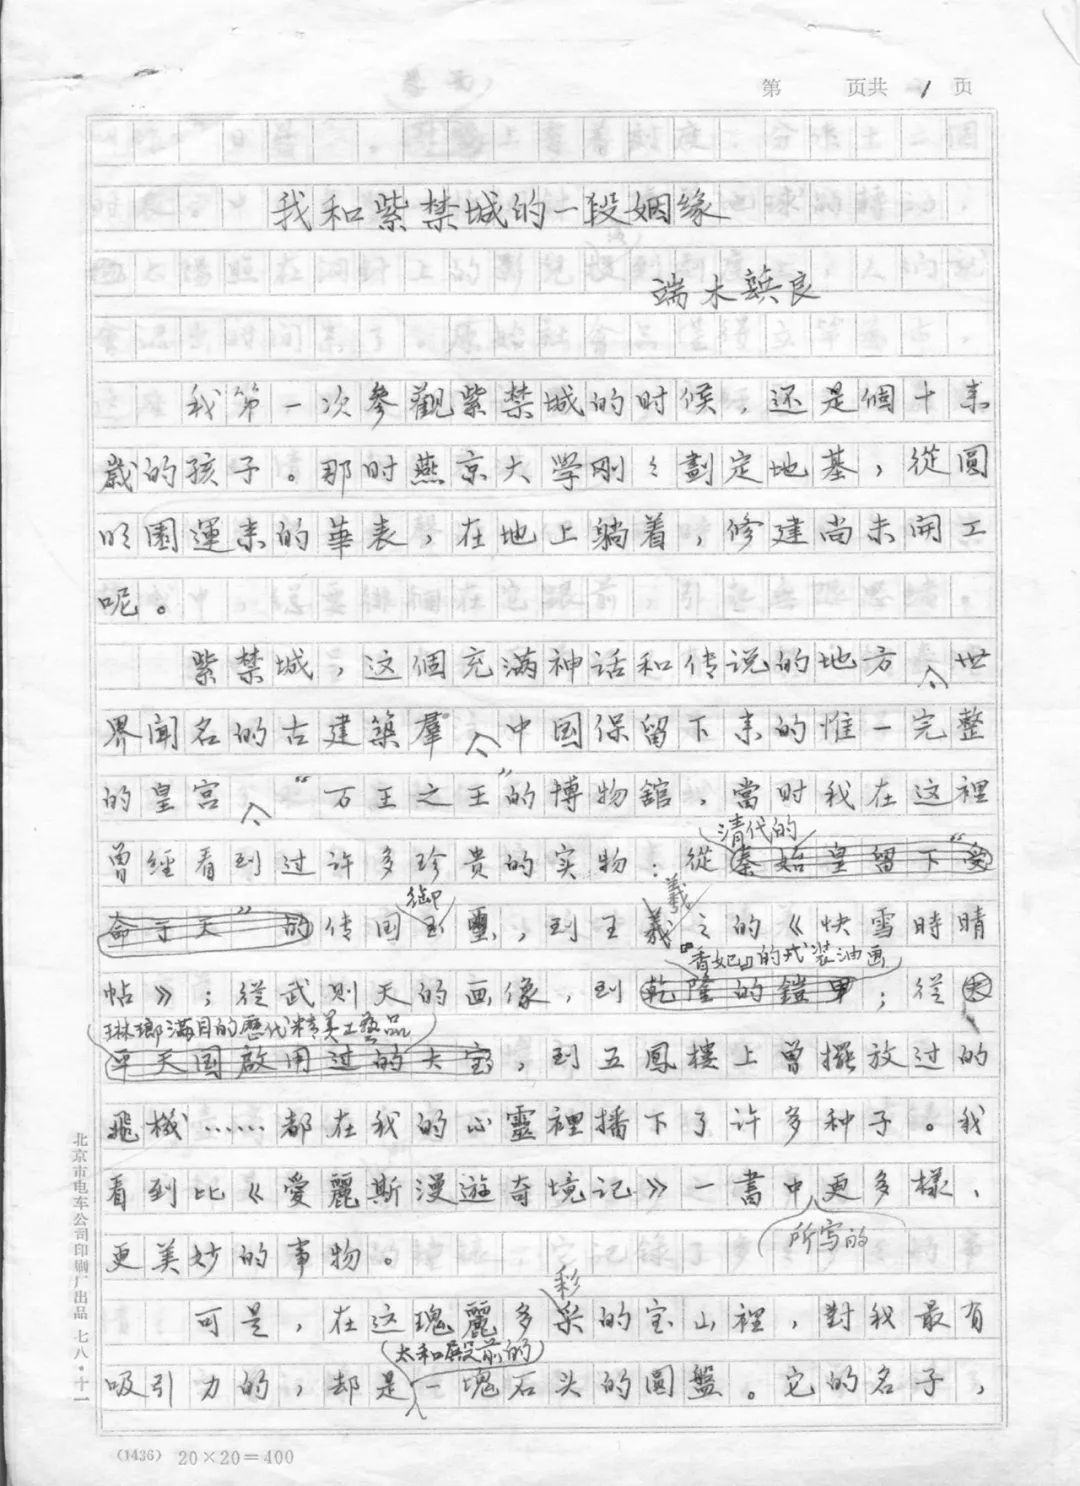 第 页共 1 页
我和紫禁城的一段姻缘
端木蕻良
我第一次參觀紫禁城的时候，还是個十来
歲的孩子。那时燕京大学刚〻劃定地基，從圓
明園運来的華表，在地上躺着，修建尚未開工
呢。
紫禁城，这個充满神话和传说的地方、世
界闻名的古建築羣、中国保留下来的惟一完整
的皇宫、“万王之王”的博物舘，當时我在这裡
清代的
曾經看到过许多珍贵的实物：從秦始皇留下“受
御 羲
命于天”的传国玉璽，到王義之的《快雪時晴
“香妃”的戎装油画
帖》；從武则天的画像，到乾隆的鎧甲；從太
琳瑯满目的歷代精美工藝品
平天国啟用过的大宝，到五鳳樓上曾擺放过的
飛機……都在我的心靈裡播下了许多种子。我
看到比《愛麗斯漫遊奇境记》一書中更多樣、
所写的
更美妙的事物。
彩
可是，在这瑰麗多采的宝山裡，對我最有
太和殿前的
吸引力的，却是一塊石头的圆盤。它的名子，
北京市电车公司印刷厂出品 七八·十一
(1436) 20×20=400